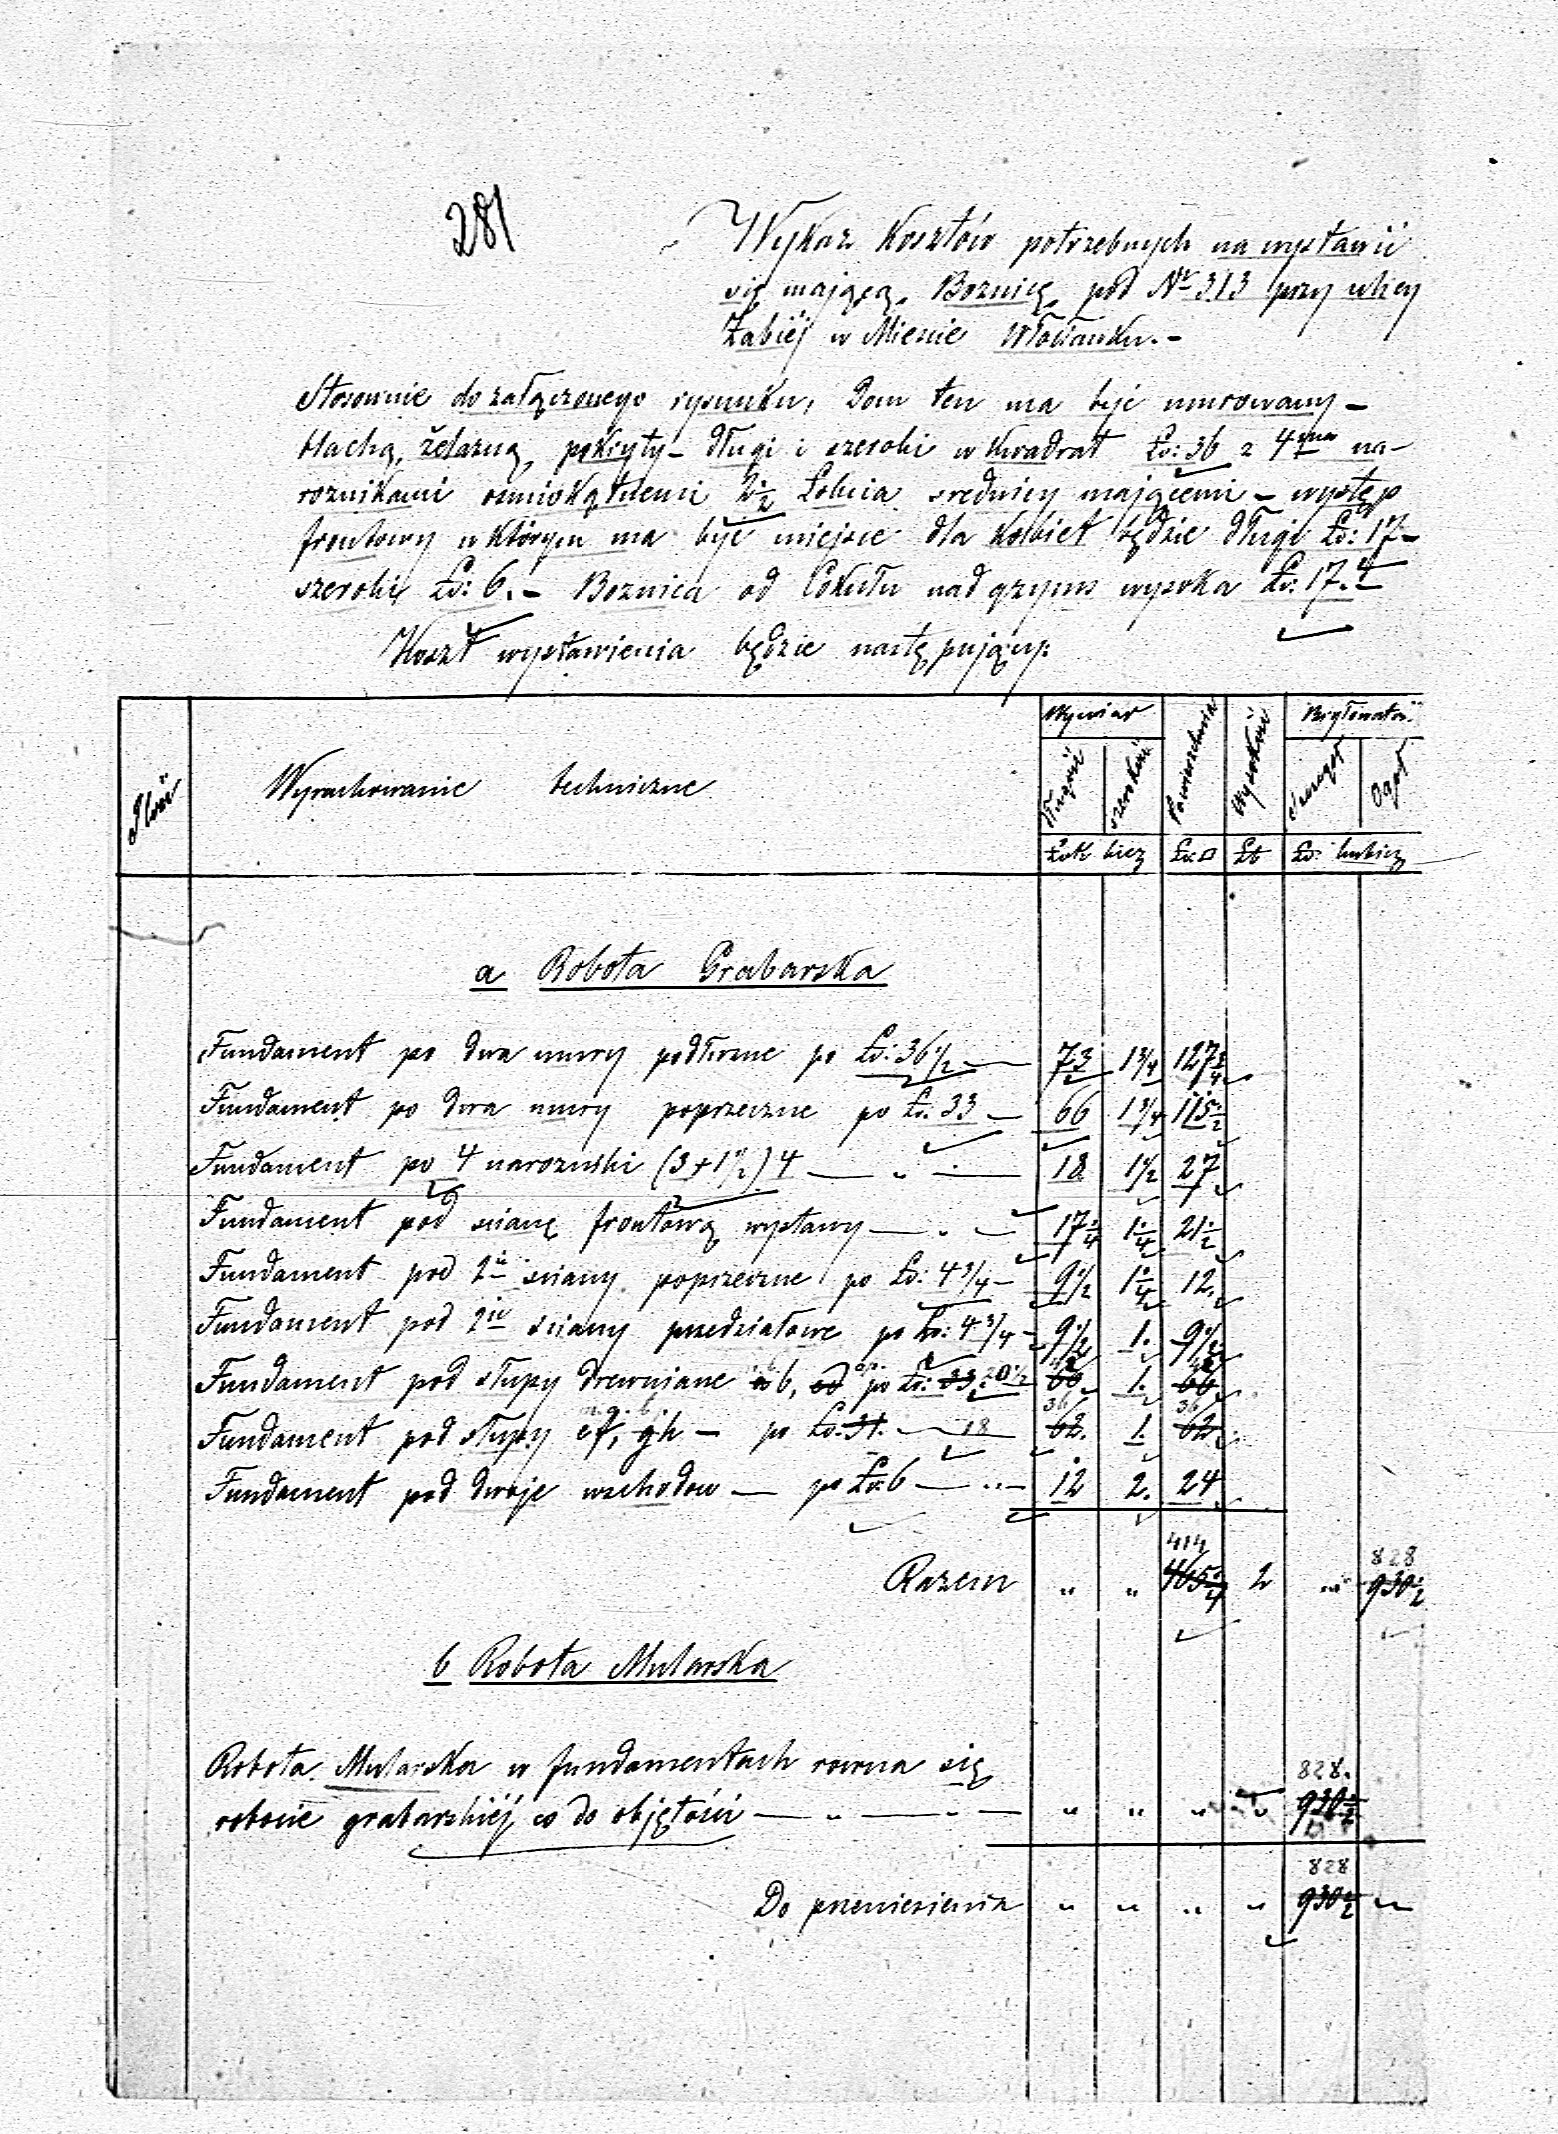 281
Wykaz Kosztów potrzebnych na wystawić
się mającą Boznicę pod Nr 313 przy ulicy
Żabiéj w Miescie Włocławku.-
Stosownie do załączonego rysunku, Dom ten ma być murowany -
blachą żelazną pokryty - długi i szeroki w Kwadrat Łó: 36 z 4ma na-
roznikami osmiokątnemi 2 1/2 Łokcia srednicy mającemi - występ
frontowy w którym ma być miejsce dla Kobiet będzie długi Łó: 17 -
szeroki Łó: 6. - Boznica od Cokułu nad gzyms wysoka Łó: 17.
Koszt wystawienia będzie następujący:
Ilość
Wyrachowanie techniczne
Wymiar
Długość
szerokość
Powierzchnia
Wysokość
Łok bież
Łó □
Łó
Łó: kubicz
a Robota Grabarska
Fundament po dwa mury podłużne po Łó: 36 1/2 — 73 1 3/4 127 3/4
Fundament po dwa mury poprzeczne po Łó: 33 — 66 1 3/4 115 1/2
Fundament po 4 narozniki (3+1 1/2) 4 — " — 18 1 1/2 27
Fundament pod scianę frontową wystawy — " — 17 1/4 1 1/4 21 1/2
Fundament pod 2ie sciany poprzeczne po Łó: 4 3/4 - 9 1/2 1 1/4 12.
Fundament pod 2ie sciany przedziałowe po Łó: 4 3/4 - 9 1/2 1. 9 1/2
Fundament pod słupy drewniane b, po Łó: 33 20 1/2 66 1. 66
m. g. b. 36 36
Fundament pod słupy ef, gh - po Łó. 31. — 18 62. 1. 62
Fundament pod dwoje wschodow — po Łó: 6 — " - 12 2. 24
414 828
Razem " " 465 1/4 2 " 930 1/2
b Robota Mularska
Robota Mularska w fundamentach rowna się 828.
robocie grabarskiéj co do objętości — " — " — " " " " 930 1/2
828
Do przeniesienia " " " " 930 1/2 "